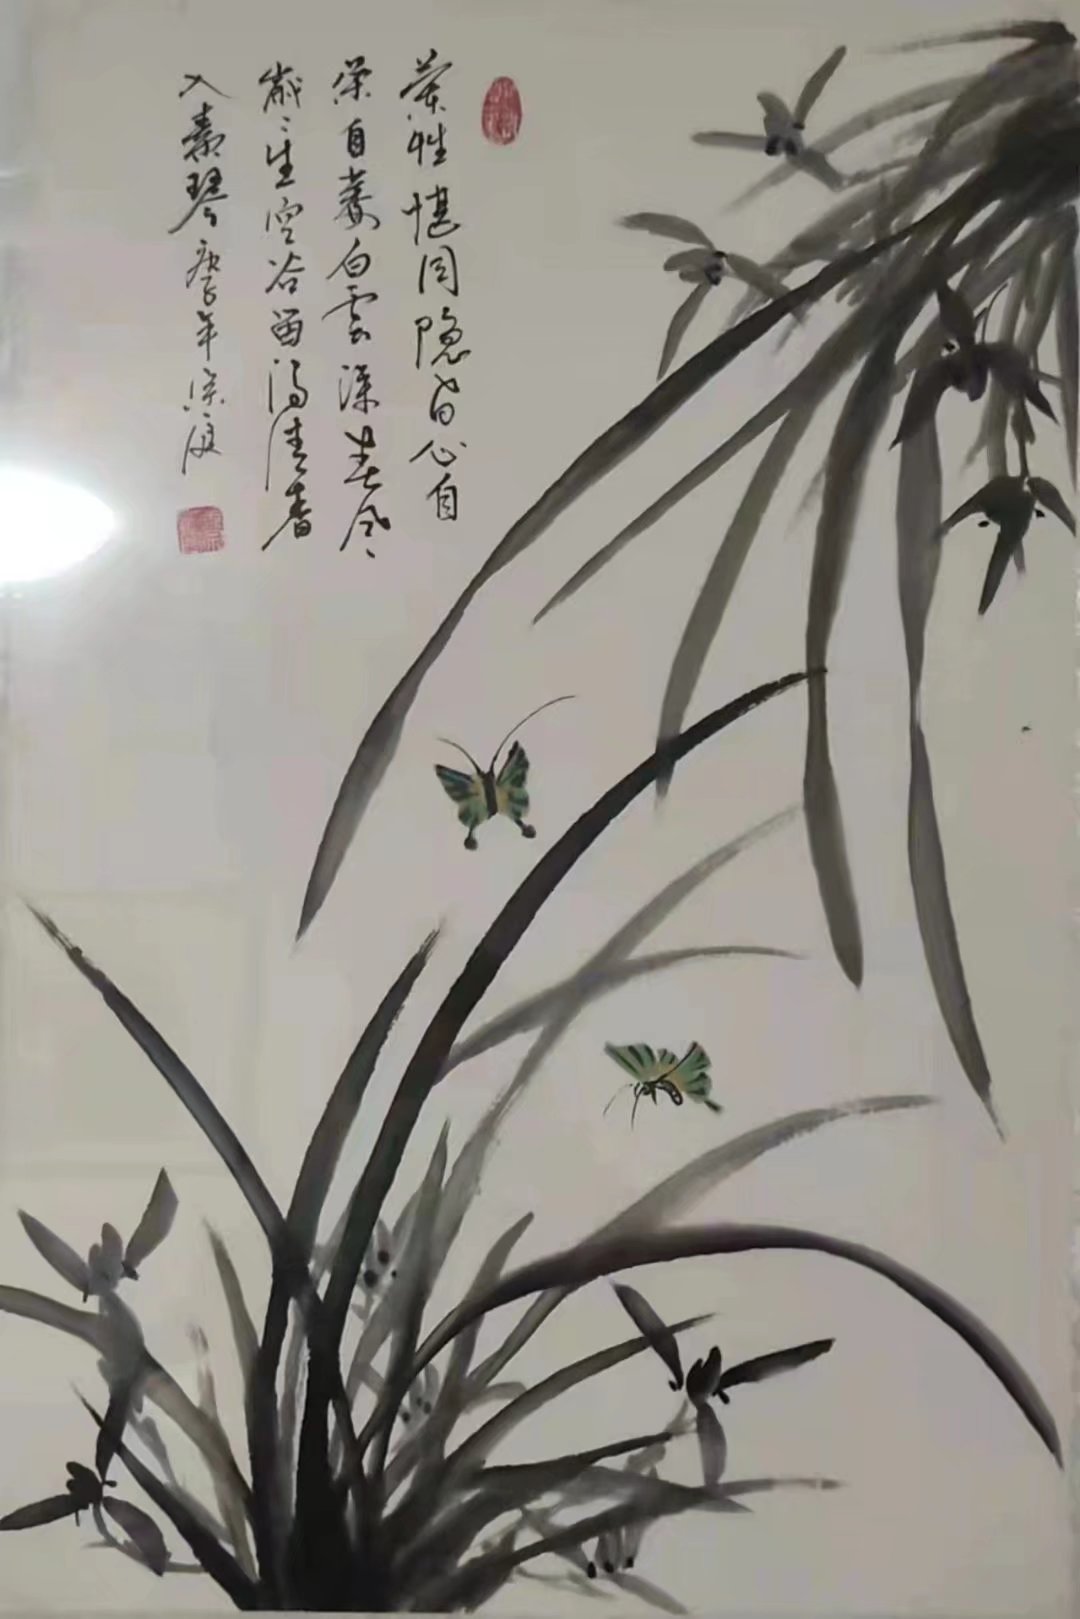 蘭性堪同隐者心自
榮自萎白雲深春风
歲〻生空谷留得清香
入素琴